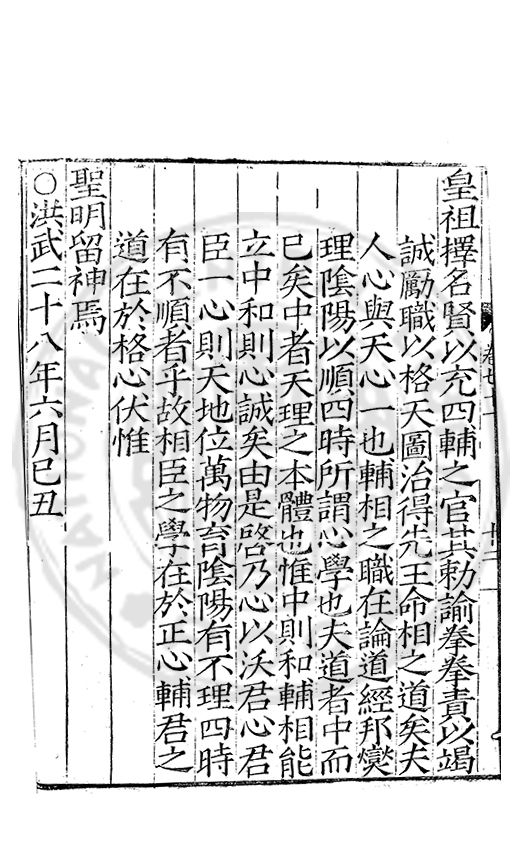 皇祖擇名賢以充四輔之官其勅諭拳拳責以竭
誠勵職以格天圖治得先王命相之道矣夫
人心與天心一也輔相之職在論道經邦燮
理陰陽以順四時所謂心學也夫道者中而
已矣中者天理之本體也惟中則和輔相能
立中和則心誠矣由是啓乃心以沃君心君
臣一心則天地位萬物育陰陽有不理四時
有不順者乎故相臣之學在於正心輔君之
道在於格心伏惟
聖明留神焉
○洪武二十八年六月巳丑